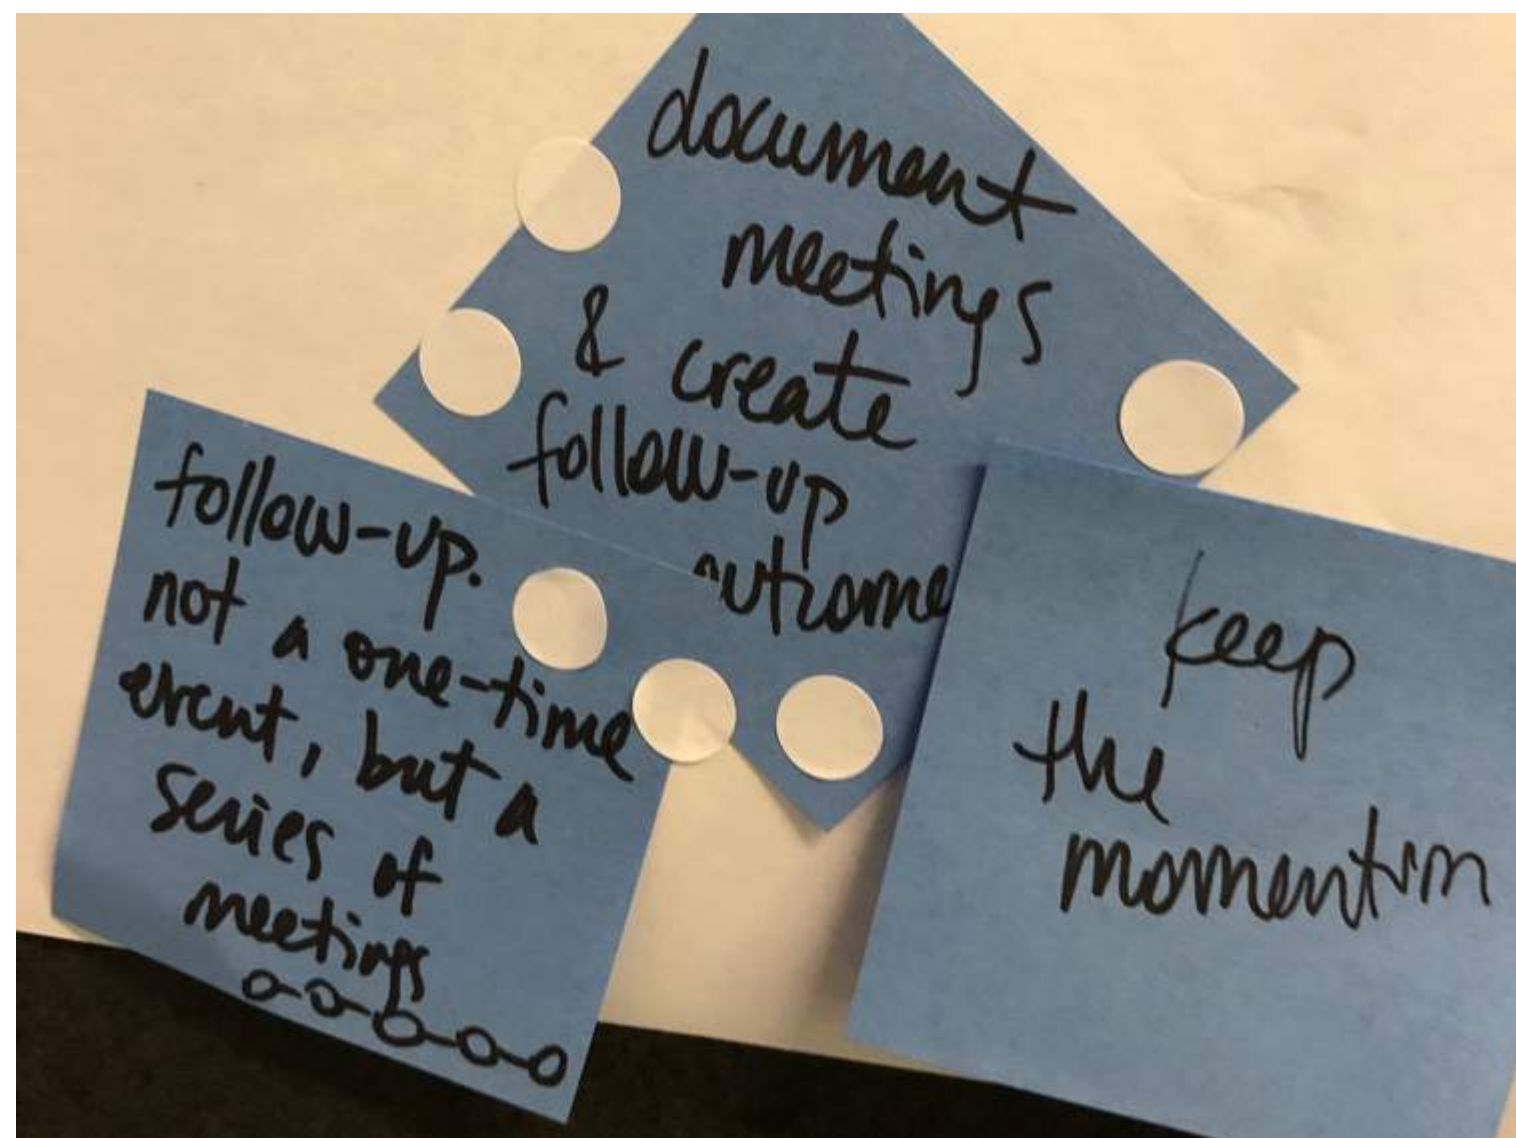 document
meetings
& create
follow-up
outcome
follow-up.
not a one-time
event, but a
series of
meetings
keep
the
momentum